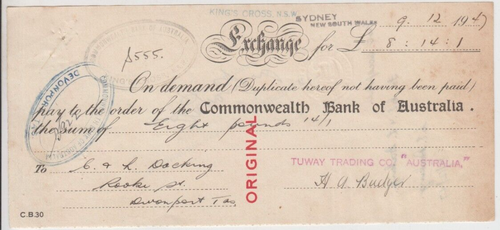 KING'S CROSS, N.S.W.
SYDNEY
NEW SOUTH WALES
9. 12. 1947
£555.
Exchange for £ 8 : 14 : 1
DEVONPORT
On demand (Duplicate hereof not having been paid)
pay to the order of the Commonwealth Bank of Australia.
the Sum of Eight pounds 14/1
ORIGINAL
TUWAY TRADING CO. "AUSTRALIA,"
To C. & L. Docking
Rooke St.
Devonport Tas
C.B.30